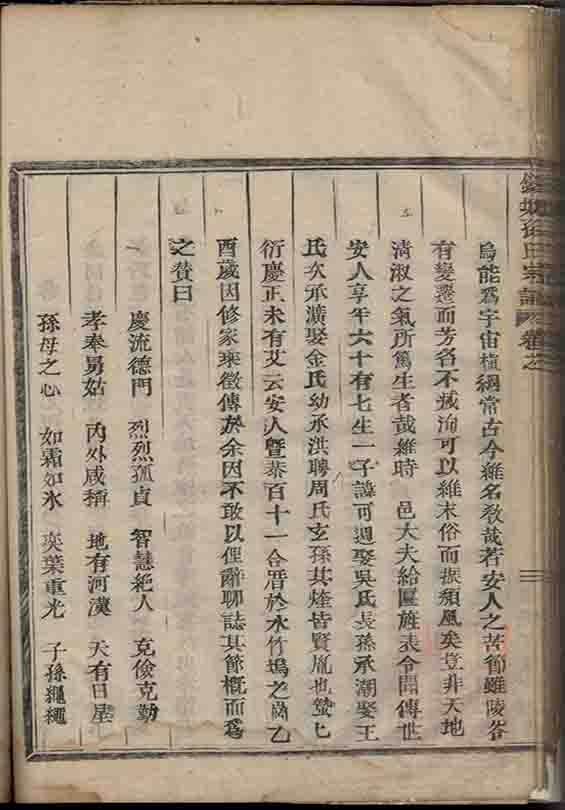 烏能為宇宙植綱常古今維名教哉若安人之苦節雖陵谷
有變遷而芳名不滅洵可以維末俗而振頹風矣豈非天地
清淑之氣所篤生者哉維時 邑大夫給匾旌表令聞傳世
安人享年六十有七生一子諱可週娶吳氏長孫承潮娶王
氏次承潢娶金氏幼承洪聘周氏玄孫其煃皆賢胤也螽七
衍慶正未有艾云安人暨泰百十一合厝於水竹塢之崗乙
酉歲因修家乘徵傳於余因不敢以俚辭聊誌其節概而為
之贊曰
慶流德門 烈烈孤貞 智慧絕人 克儉克勤
孝奉舅姑 內外咸稱 地有河漢 天有日星
孫母之心 如霜如氷 奕葉重光 子孫繩繩
氏宗譜 卷之